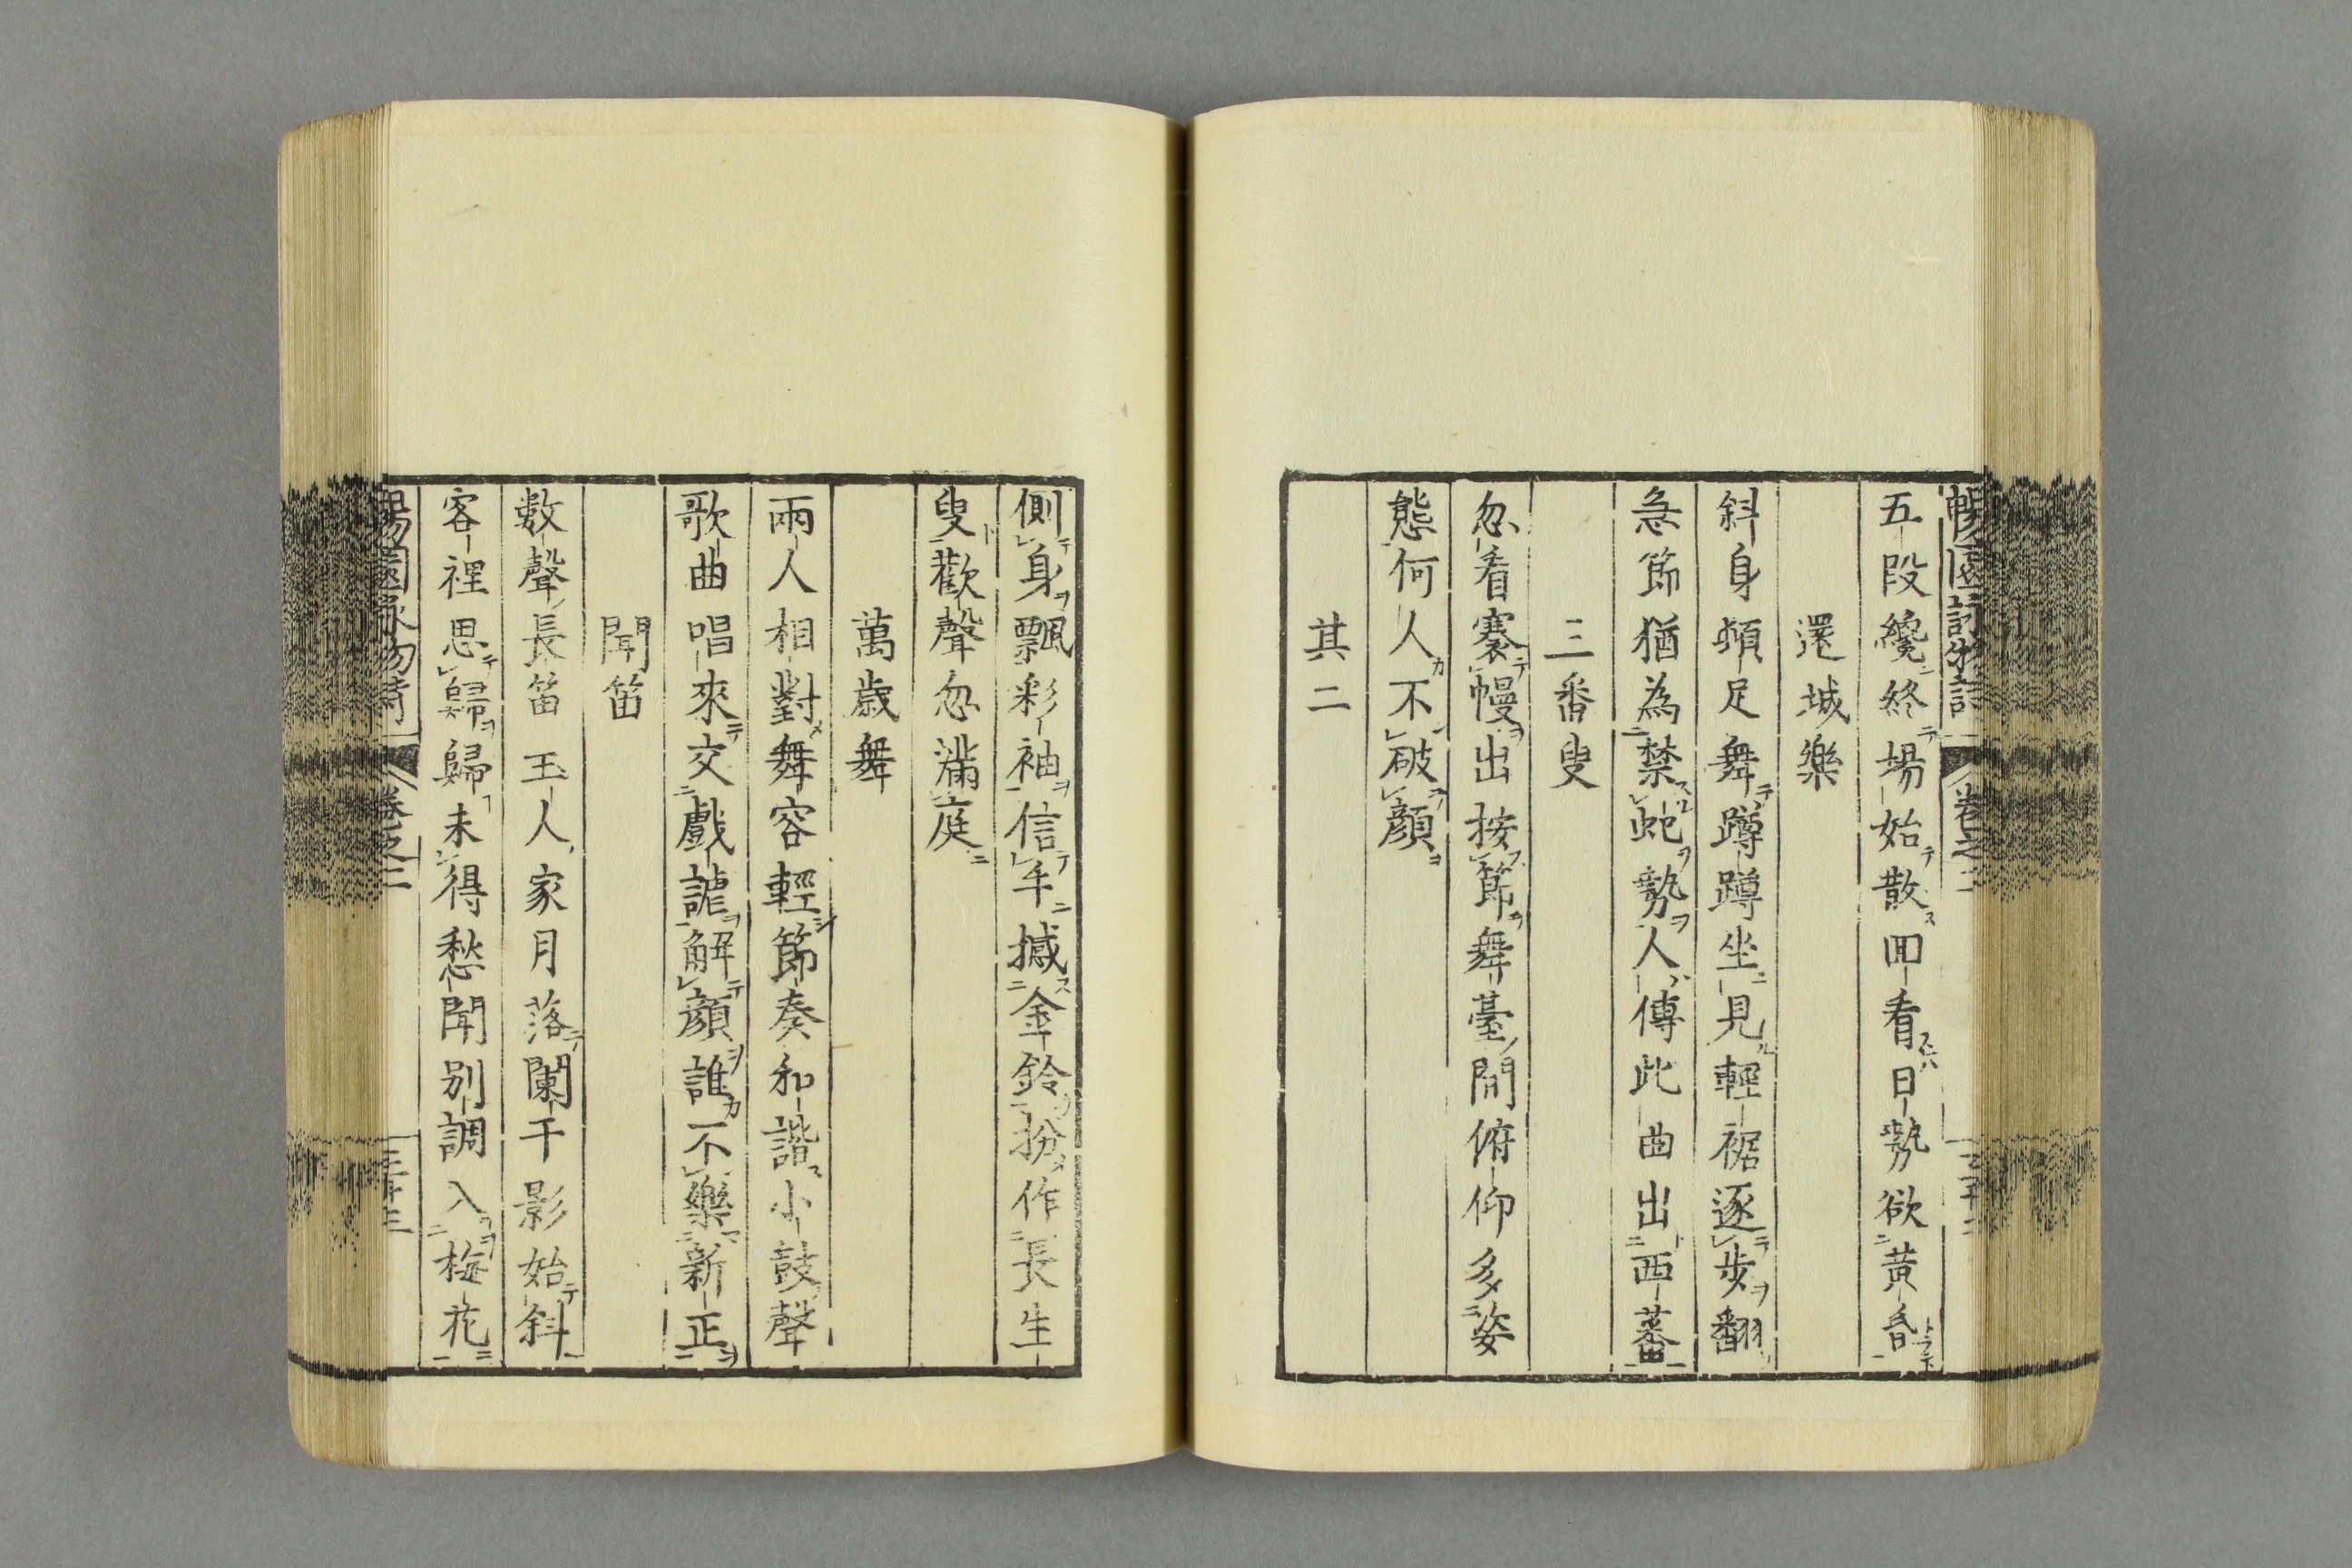 五段纔終場始散回看日勢欲黃昏
還城樂
斜身頻足舞蹲蹲坐見輕裾逐步翻
急節猶為禁蛇勢人傳此曲出西蕃
三番叟
忽看褰幔出按節舞臺間俯仰多姿
態何人不破顔
其二
側身飄彩袖信手撼金鈴扮作長生
叟歡聲忽滿庭
萬歲舞
兩人相對舞容輕節奏和諧小鼓聲
歌曲唱來交戲謔解顔誰不樂新正
聞笛
數聲長笛玉人家月落闌干影始斜
客裡思歸歸未得愁聞別調入梅花